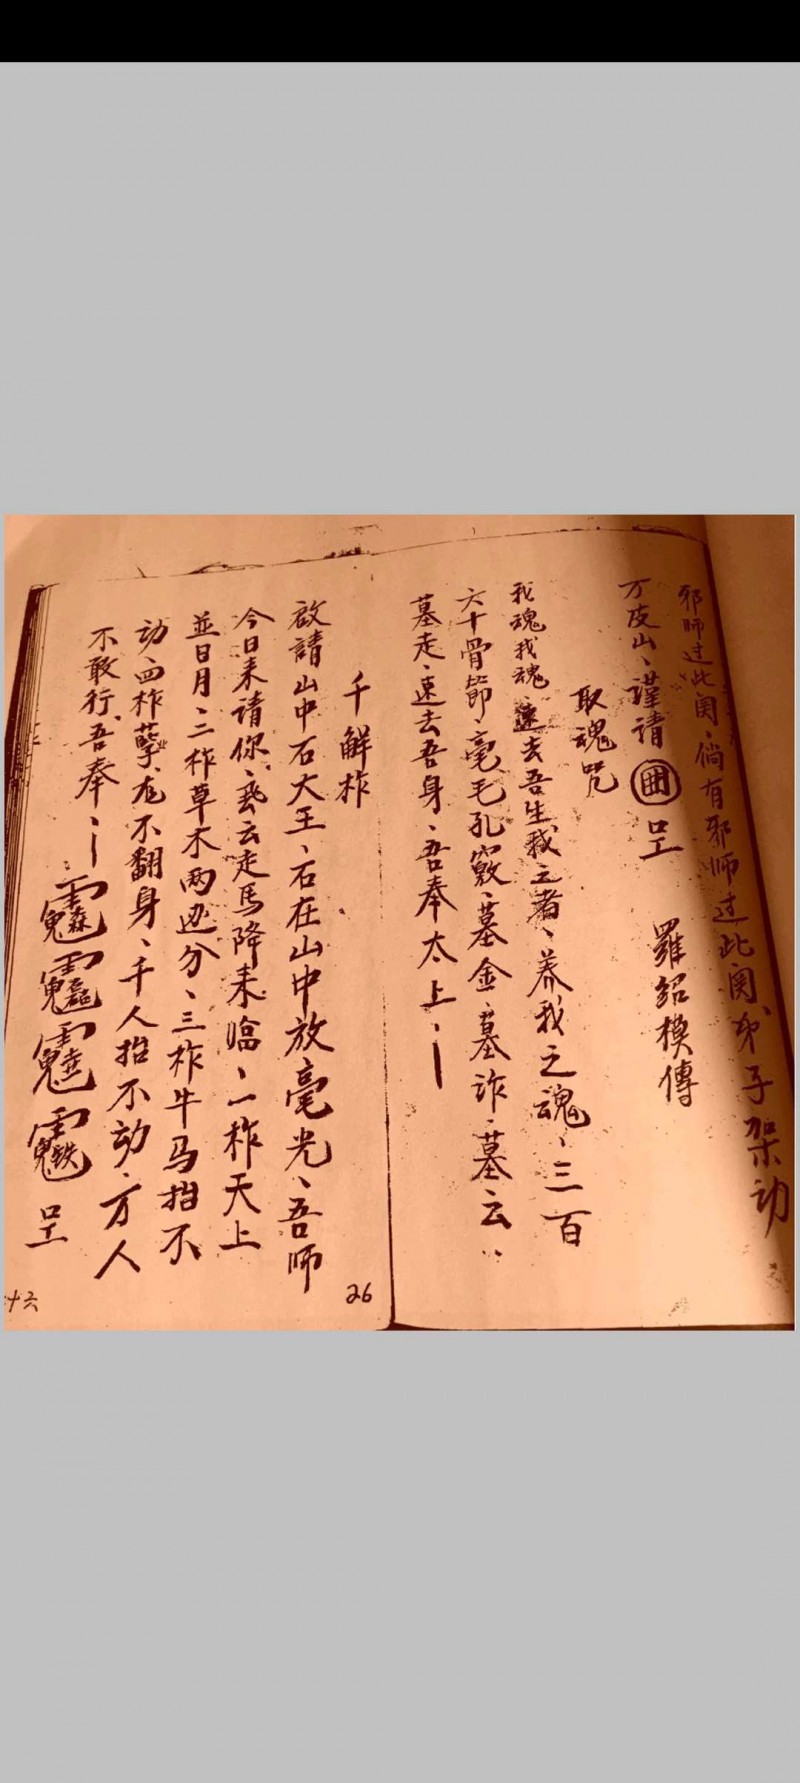 邪師过此関、倘有邪师过此関、弟子架动
万皮山、謹请 囲 罡 羅紹模傳
取魂咒
我魂我魂速去吾生我之者、养我之魂、三百
六十骨節、毫毛孔竅、墓金、墓诈、墓云、
墓走、速去吾身、吾奉太上、
千觧柞
啟請山中石大王、石在山中放毫光、吾师
今日来请你、云走馬降来臨、一柞天上
並日月、二柞草木两边分、三柞牛马抬不
动、四柞孽龙不翻身、千人抬不动、万人
不敢行、吾奉、
罡
26
十六